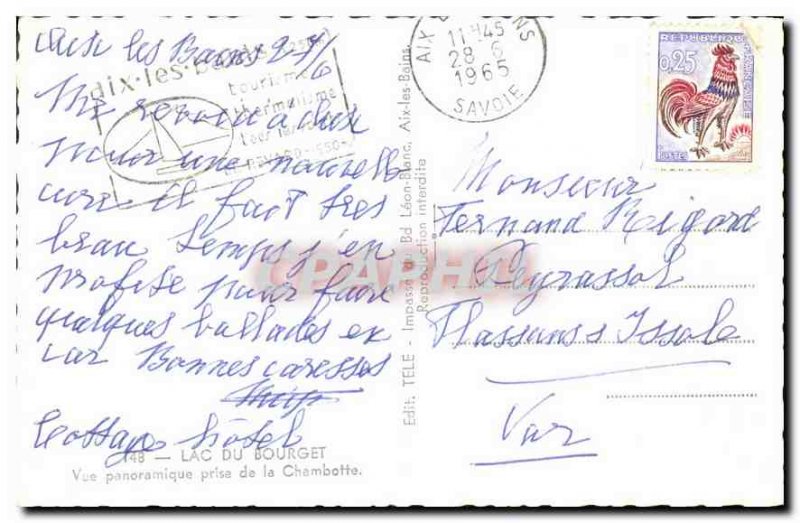 Aix les Bains 27/6
Me revoilà à Aix
pour une nouvelle
cure il fait tres
beau temps j'en
profite pour faire
quelques ballades en
car Bonnes caresses
Cottage hôtel
148 — LAC DU BOURGET
Vue panoramique prise de la Chambotte.
aix·les·bains
tourisme
thermalisme
Edit. TELE - Impasse du Bd Léon-Blanc, Aix-les-Bains.
Reproduction interdite
CPAPHIL
AIX LES BAINS
11H45
28 - 6
1965
SAVOIE
REPUBLIQUE
FRANCAISE
0,25
POSTES
Monsieur
Fernand Rigord
Peyrassol
Flassans s Issole
Var